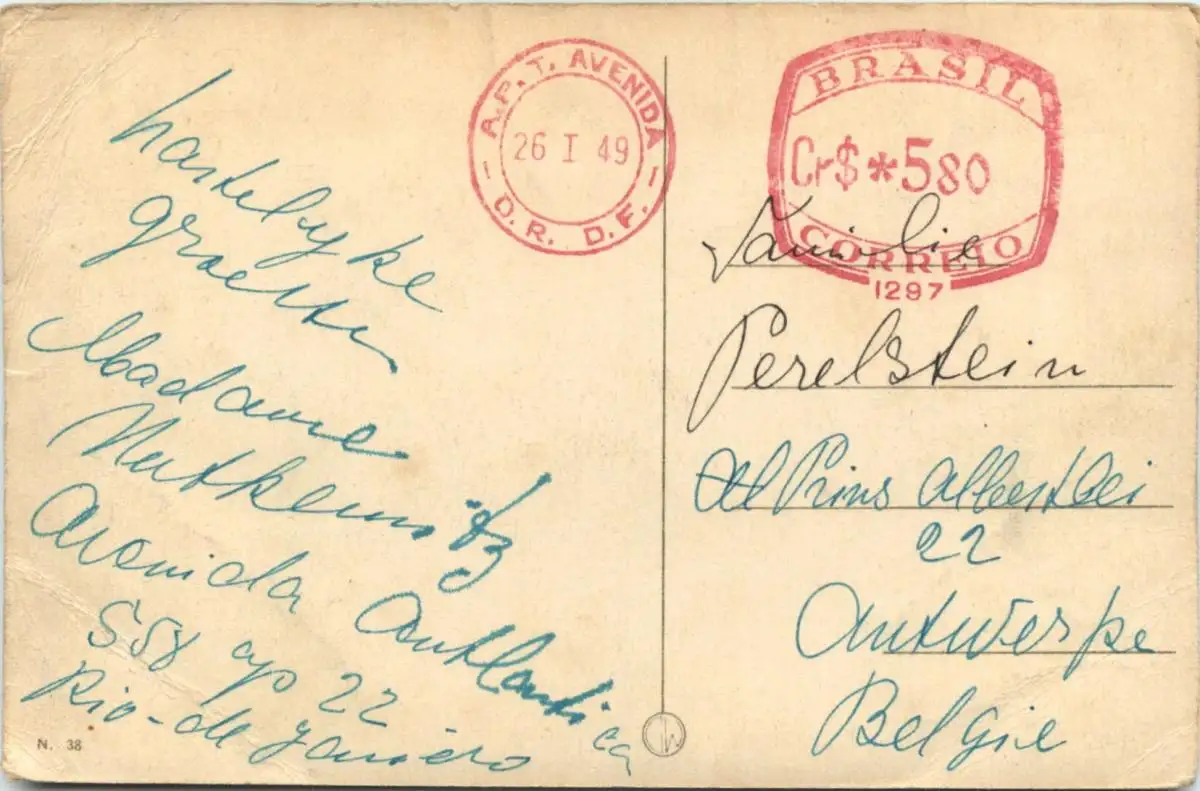 hartelyke
groeten
Madame
Avenida Autlantica
558 ap 22
Rio-de janiero
N. 38
A.P.T. AVENIDA
26 I 49
D.R. D.F.
BRASIL
Cr$ *580
CORREIO
1297
Familie
Perelstein
Prins Albertlei
22
Antwerpe
Belgie